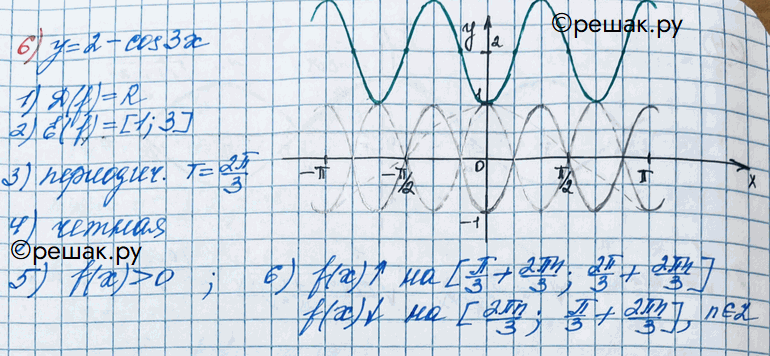 ©решак.ру
б) y = 2 - cos3x
1) D(f) = R
2) E(f) = [1; 3]
3) периодич. T = 2π/3
4) четная
©решак.ру
5) f(x) > 0 ; 6) f(x)↑ на [π/3 + 2πn/3; 2π/3 + 2πn/3]
f(x)↓ на [2πn/3; π/3 + 2πn/3], n∈Z
y 2
1
-π -π/2 0 π/2 π x
-1